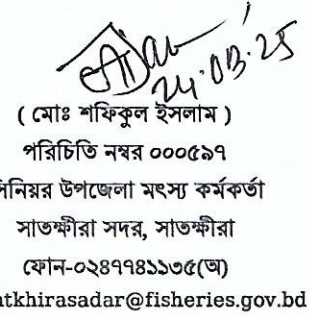 24.03.25
( মোঃ শফিকুল ইসলাম )
পরিচিতি নম্বর ০০০৫৯৭
সিনিয়র উপজেলা মৎস্য কর্মকর্তা
সাতক্ষীরা সদর, সাতক্ষীরা
ফোন-০২৪৭৭৪১১৩৫(অ)
atkhirasadar@fisheries.gov.bd